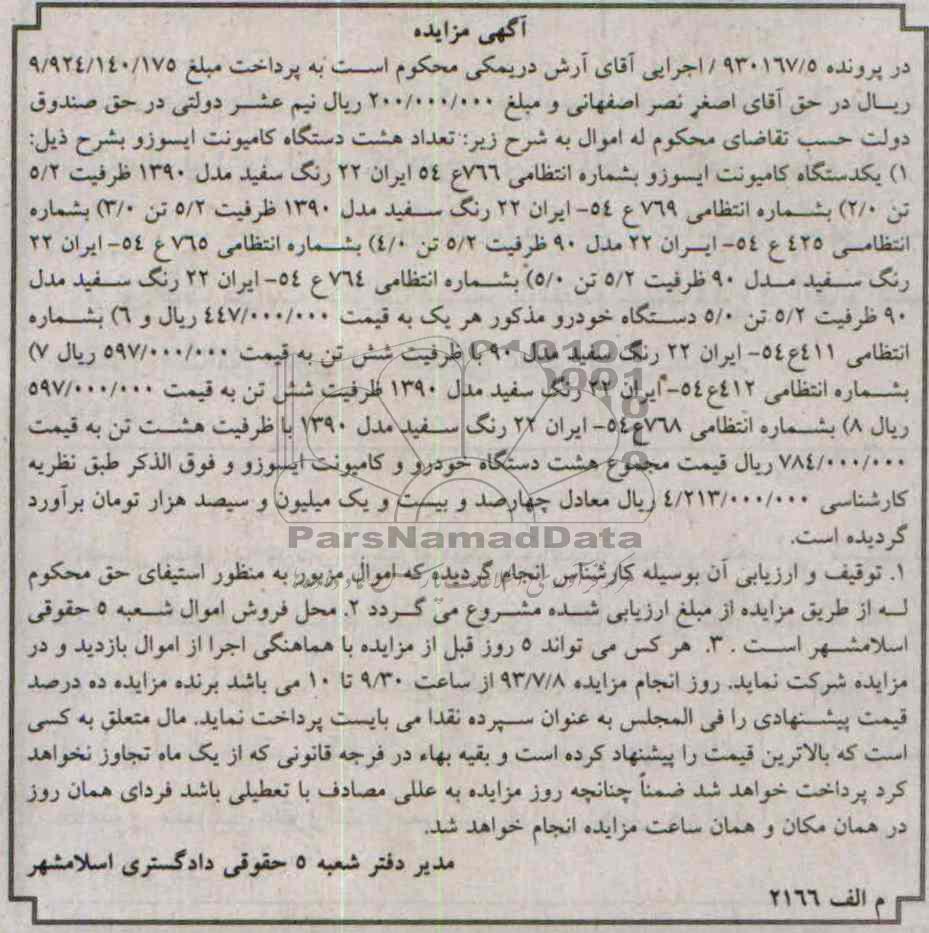 آگهی مزایده
در پرونده ۹۳۰۱۶۷/۵ / اجرایی آقای آرش دریمکی محکوم است به پرداخت مبلغ ۹/۹۲٤/۱٤۰/۱۷۵
ریال در حق آقای اصغر نصر اصفهانی و مبلغ ۲۰۰/۰۰۰/۰۰۰ ریال نیم عشر دولتی در حق صندوق
دولت حسب تقاضای محکوم له اموال به شرح زیر: تعداد هشت دستگاه کامیونت ایسوزو بشرح ذیل:
۱) یکدستگاه کامیونت ایسوزو بشماره انتظامی ۷٦٦ع ٥٤ ایران ۲۲ رنگ سفید مدل ۱۳۹۰ ظرفیت ٥/۲
تن ۲/۰) بشماره انتظامی ۷٦۹ ع ٥٤- ایران ۲۲ رنگ سفید مدل ۱۳۹۰ ظرفیت ٥/۲ تن ۳/۰) بشماره
انتظامی ٤۲٥ ع ٥٤- ایران ۲۲ مدل ۹۰ ظرفیت ٥/۲ تن ٤/۰) بشماره انتظامی ۷٦٥ ع ٥٤- ایران ۲۲
رنگ سفید مدل ۹۰ ظرفیت ٥/۲ تن ٥/۰) بشماره انتظامی ۷٦٤ ع ٥٤- ایران ۲۲ رنگ سفید مدل
۹۰ ظرفیت ٥/۲ تن ٥/۰ دستگاه خودرو مذکور هر یک به قیمت ٤٤۷/۰۰۰/۰۰۰ ریال و ٦) بشماره
انتظامی ٤۱۱ع٥٤- ایران ۲۲ رنگ سفید مدل ۹۰ با ظرفیت شش تن به قیمت ٥۹۷/۰۰۰/۰۰۰ ریال ۷)
بشماره انتظامی ٤۱۲ع٥٤- ایران ۲۲ رنگ سفید مدل ۱۳۹۰ ظرفیت شش تن به قیمت ٥۹۷/۰۰۰/۰۰۰
ریال ۸) بشماره انتظامی ۷٦۸ع٥٤- ایران ۲۲ رنگ سفید مدل ۱۳۹۰ با ظرفیت هشت تن به قیمت
۷۸٤/۰۰۰/۰۰۰ ریال قیمت مجموع هشت دستگاه خودرو و کامیونت ایسوزو و فوق الذکر طبق نظریه
کارشناسی ٤/۲۱۳/۰۰۰/۰۰۰ ریال معادل چهارصد و بیست و یک میلیون و سیصد هزار تومان برآورد
گردیده است.
ParsNamadData
۱. توقیف و ارزیابی آن بوسیله کارشناس انجام گردیده که اموال مزبور به منظور استیفای حق محکوم
له از طریق مزایده از مبلغ ارزیابی شده مشروع می گردد ۲. محل فروش اموال شعبه ٥ حقوقی
اسلامشهر است . ۳. هر کس می تواند ٥ روز قبل از مزایده با هماهنگی اجرا از اموال بازدید و در
مزایده شرکت نماید. روز انجام مزایده ۹۳/۷/۸ از ساعت ۹/۳۰ تا ۱۰ می باشد برنده مزایده ده درصد
قیمت پیشنهادی را فی المجلس به عنوان سپرده نقدا می بایست پرداخت نماید. مال متعلق به کسی
است که بالاترین قیمت را پیشنهاد کرده است و بقیه بهاء در فرجه قانونی که از یک ماه تجاوز نخواهد
کرد پرداخت خواهد شد ضمناً چنانچه روز مزایده به عللی مصادف با تعطیلی باشد فردای همان روز
در همان مکان و همان ساعت مزایده انجام خواهد شد.
مدیر دفتر شعبه ٥ حقوقی دادگستری اسلامشهر
م الف ۲۱٦٦